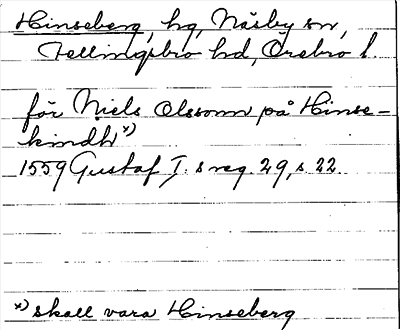 Hinseberg, hg, Näsby sn,
Fellingsbro hd, Örebro l.
för Niels Olssonn på Hinse-
kindh x)
1559 Gustaf I. s reg. 29, s 22
x) skall vara Hinseberg